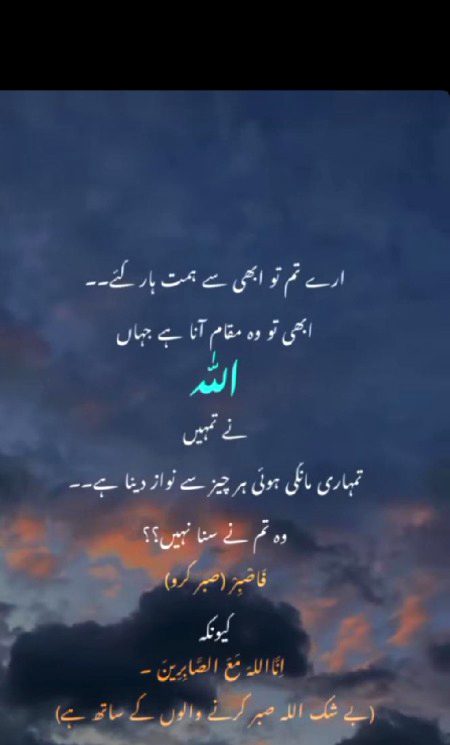 ارے تم تو ابھی سے ہمت ہار گئے۔۔
ابھی تو وہ مقام آنا ہے جہاں
اللّٰه
نے تمہیں
تمہاری مانگی ہوئی ہر چیز سے نواز دینا ہے۔۔
وہ تم نے سنا نہیں؟؟
فَاصْبِرْ (صبر کرو)
کیونکہ
اِنَّااللهَ مَعَ الصَّابِرِينَ ۔
(بے شک اللہ صبر کرنے والوں کے ساتھ ہے)